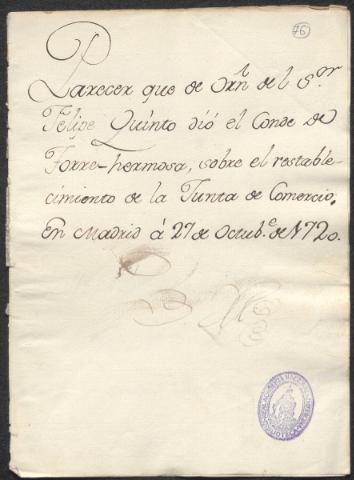 76
Parecer que de Orñ del Sor.
Felipe Quinto dió el Conde de
Torre-hermosa, sobre el restable-
cimiento de la Junta de Comercio.
En Madrid á 27 de Octube. de 1720.